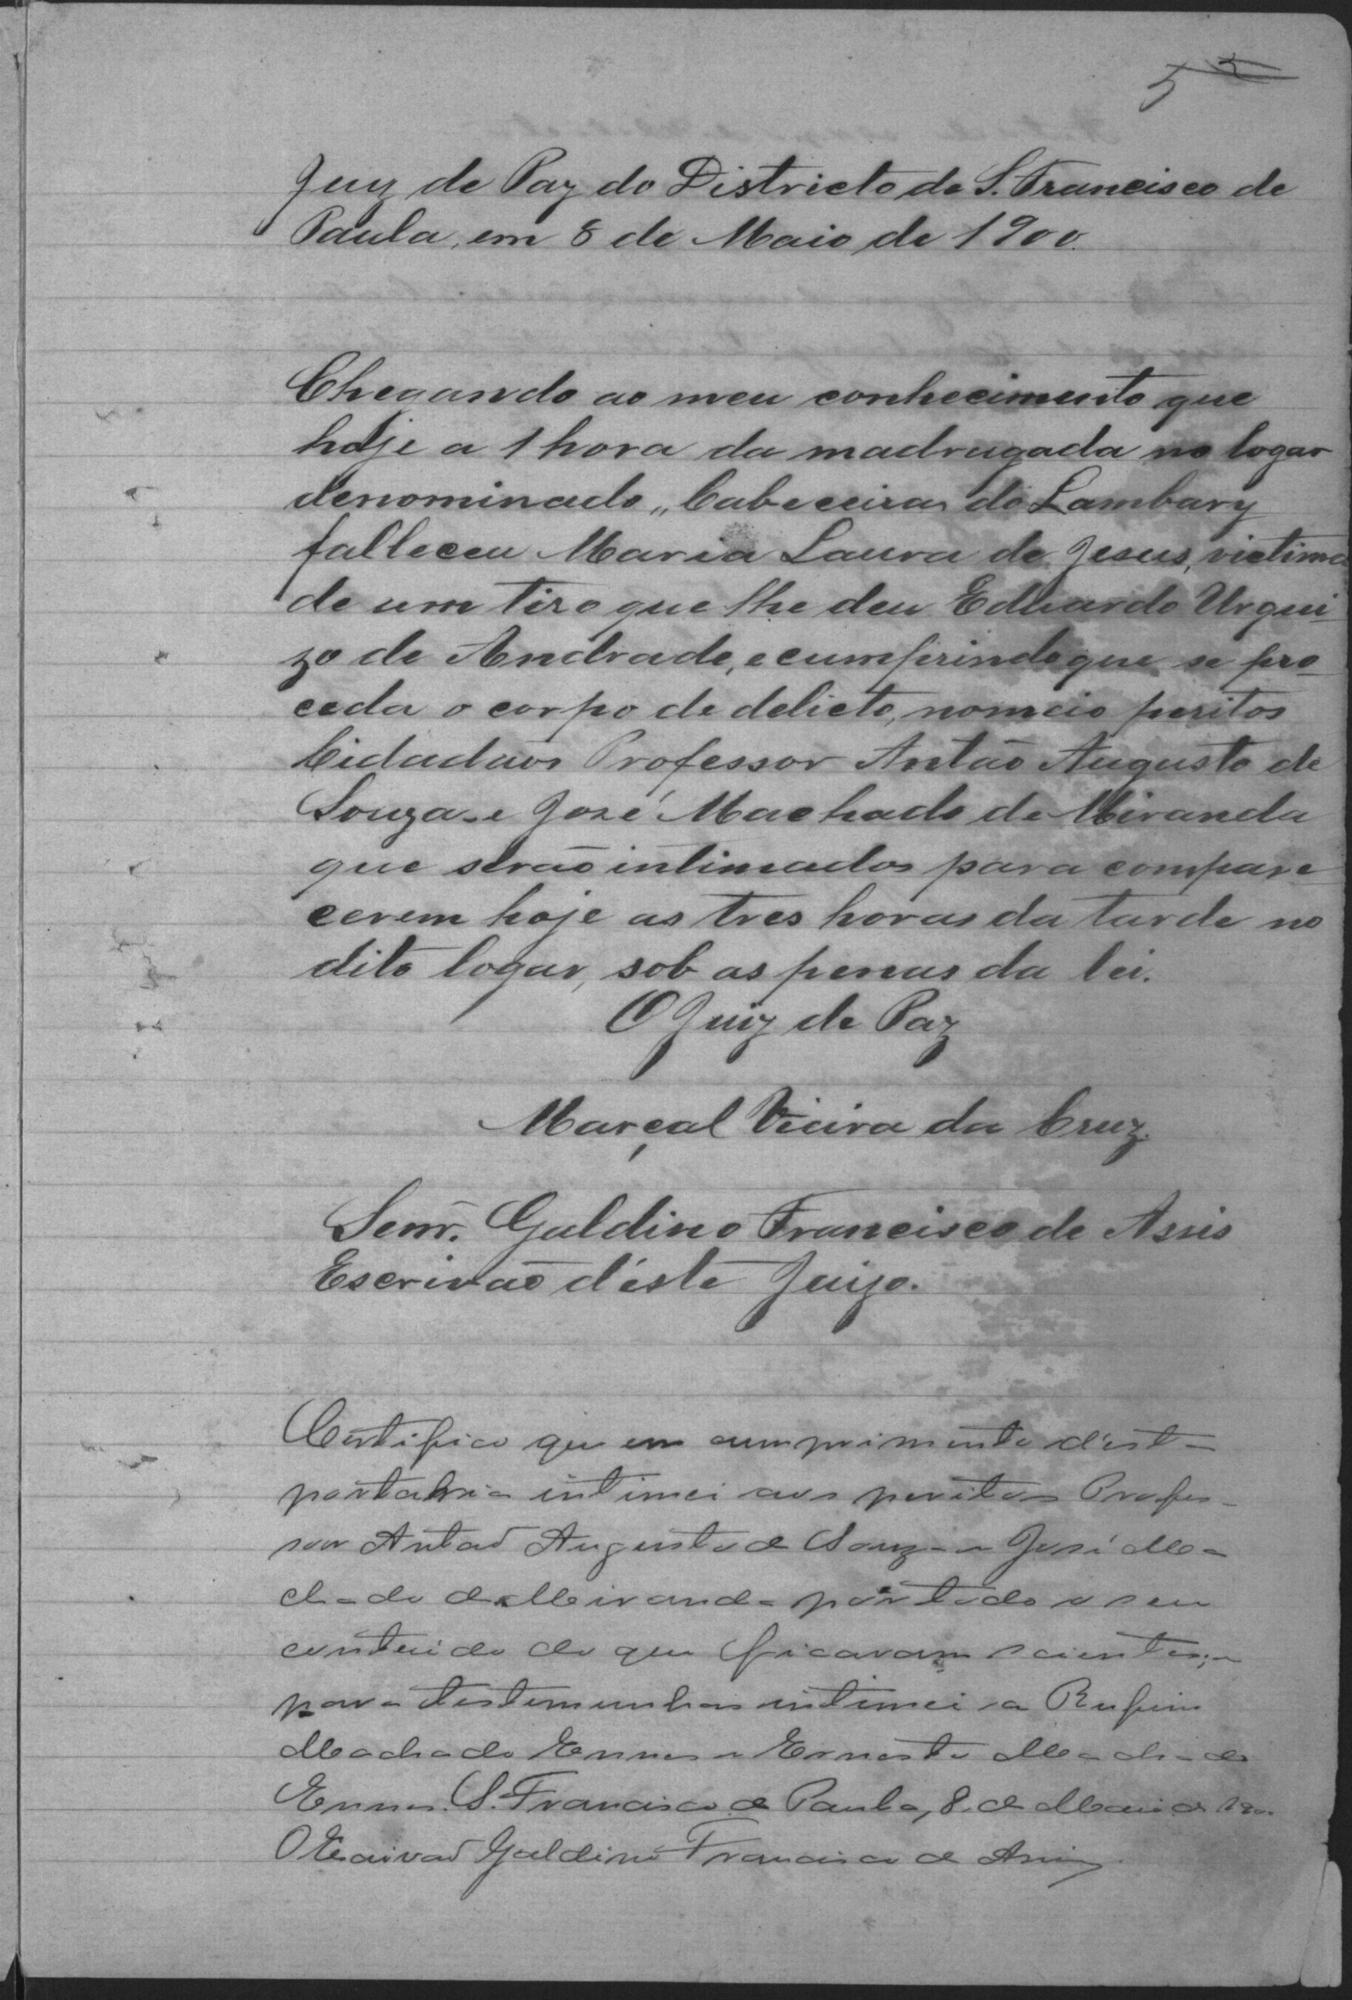 5
Juiz de Paz do Districto de S. Francisco de
Paula, em 8 de Maio de 1900.
Chegando ao meu conhecimento que
hoje a 1 hora da madrugada no logar
denominado „Cabeceiras do Lambary
falleceu Maria Laura de Jesus, victima
de um tiro que lhe deu Eduardo Urqui-
zo de Andrade, e cumprindo que se pro-
ceda o corpo de delicto, nomeio peritos
Cidadãos Professor Antão Augusto de
Souza e José Machado de Miranda
que serão intimados para compare-
cerem hoje as tres horas da tarde no
dito logar, sob as penas da lei.
O Juiz de Paz
Marçal Vieira da Cruz.
Senr. Galdino Francisco de Assis
Escrivão d'éste Juizo.
Certifico que em cumprimento d'esta
portaria intimei aos peritos Profes-
sor Antaõ Augusto de Souza e José Ma-
chado de Miranda por todo o seu
conteúdo do que ficavam scientes; e
para testemunhas intimei a Rufino
Machado Ennes e Ernesto Machado
Ennes. S. Francisco de Paula, 8 de Maio de 1900.
O Escrivaõ Galdino Francisco de Assis